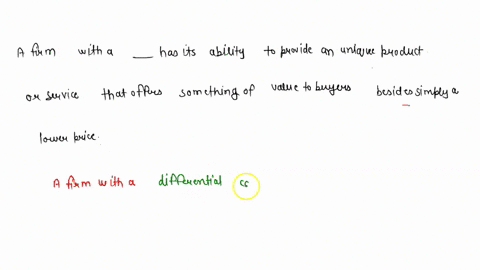 A firm with a ___ has its ability to provide an unique product
or service that offers something of value to buyers besides simply a
lower price.
A firm with a differential co